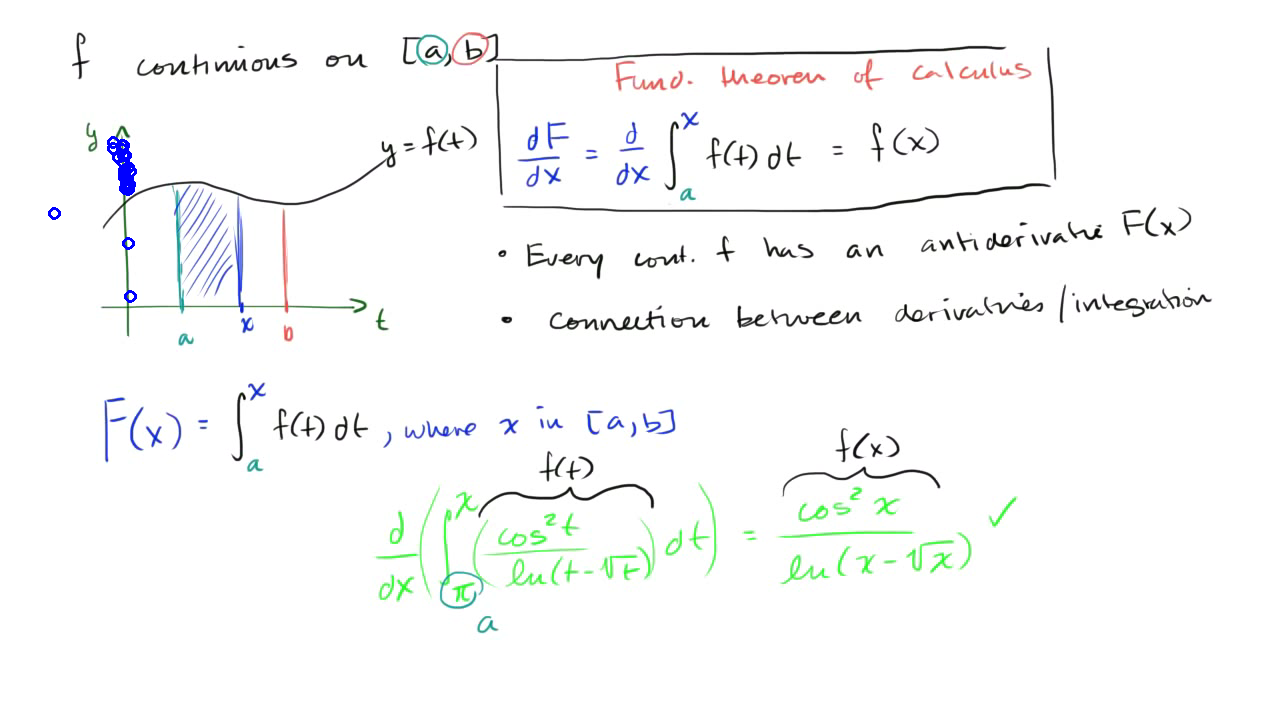 f continuous on [a, b]
Fund. theorem of calculus
dF/dx = d/dx ∫_a^x f(t) dt = f(x)
y
y = f(t)
t
a x b
• Every cont. f has an antiderivative F(x)
• connection between derivatives/integration
F(x) = ∫_a^x f(t) dt, where x in [a,b]
f(t) f(x)
d/dx (∫_π^x (cos²t / ln(t-√t)) dt) = cos²x / ln(x-√x) ✓
a